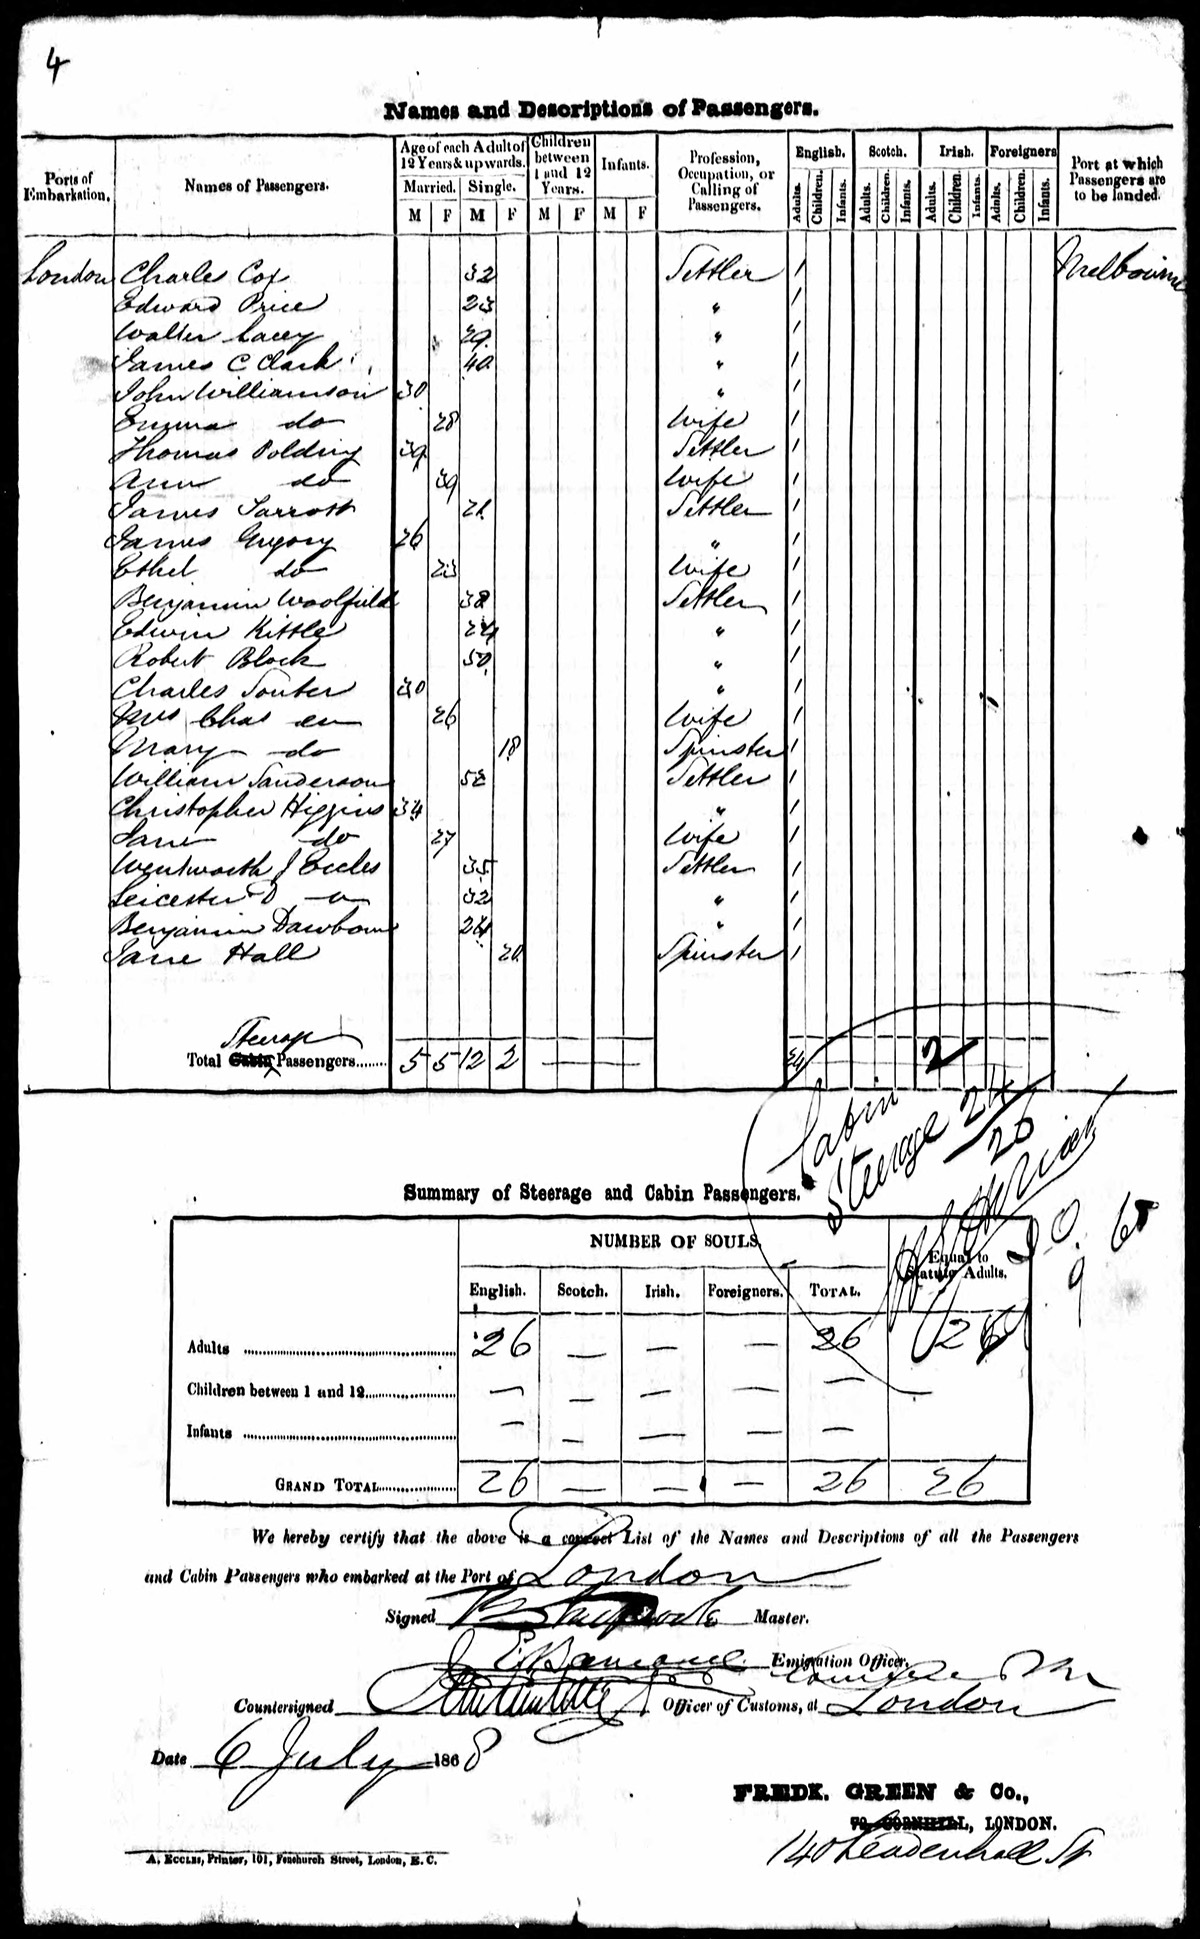 4
Names and Descriptions of Passengers.
Ports of Embarkation. Names of Passengers. Age of each Adult of 12 Years & upwards. Children between 1 and 12 Years. Infants. Profession, Occupation, or Calling of Passengers. English. Scotch. Irish. Foreigners Port at which Passengers are to be landed.
Married. Single.
M F M F M F M F Adults. Children. Infants. Adults. Children. Infants. Adults. Children. Infants. Adults. Children. Infants.
London Charles Cox 32 Settler 1 Melbourne
Edward Price 23 " 1
Walter Lacey 29 " 1
James C Clark 40 " 1
John Williamson 30 " 1
Emma do 28 Wife 1
Thomas Polding 39 Settler 1
Ann do 39 Wife 1
James 21 Settler 1
James Gregory 26 " 1
Ethel do 23 Wife 1
Benjamin Woolfield 38 Settler 1
Edwin Kittle 24 " 1
Robert Block 50 " 1
Charles Souter 30 " 1
Mrs Chas 26 Wife 1
Mary do 18 Spinster 1
William Sanderson 52 Settler 1
Christopher Higgins 34 " 1
Jane do 27 Wife 1
Wentworth J Eccles 35 Settler 1
Leicester D 32 " 1
Benjamin 24 " 1
Jane Hall 20 Spinster 1
Steerage
Total Cabin Passengers........ 5 5 12 2 — — 24
Cabin 2
Steerage 24
26
Summary of Steerage and Cabin Passengers.
NUMBER OF SOULS. Equal to Statute Adults.
English. Scotch. Irish. Foreigners. TOTAL.
Adults 26 — — — 26 26
Children between 1 and 12 — — — — —
Infants — — — — —
GRAND TOTAL 26 — — — 26 26
We hereby certify that the above is a correct List of the Names and Descriptions of all the Passengers
and Cabin Passengers who embarked at the Port of London
Signed Master.
Emigration Officer,
Countersigned Officer of Customs, at London
Date 6 July 1868
FREDK. GREEN & Co.,
72, CORNHILL, LONDON.
140 Leadenhall St
A. ECCLES, Printer, 101, Fenchurch Street, London, E. C.